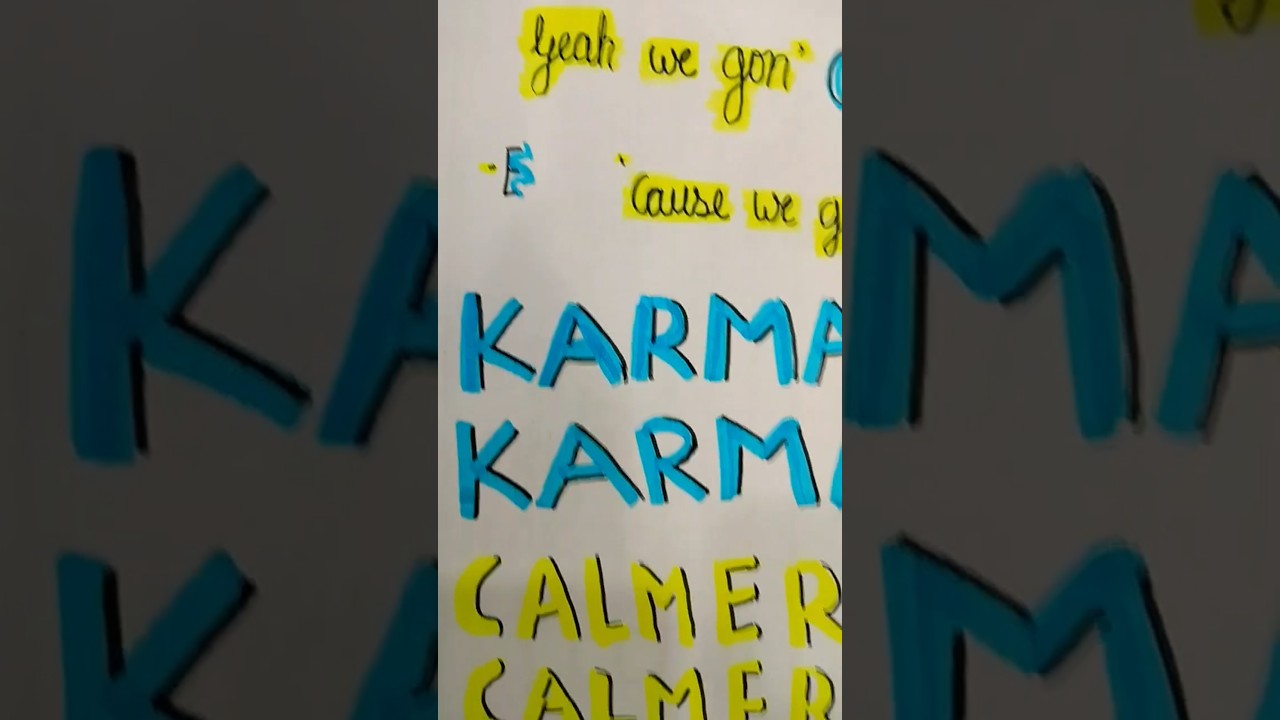 Yeah we gon'
'Cause we g
KARMA
KARM
CALMER
CALMER